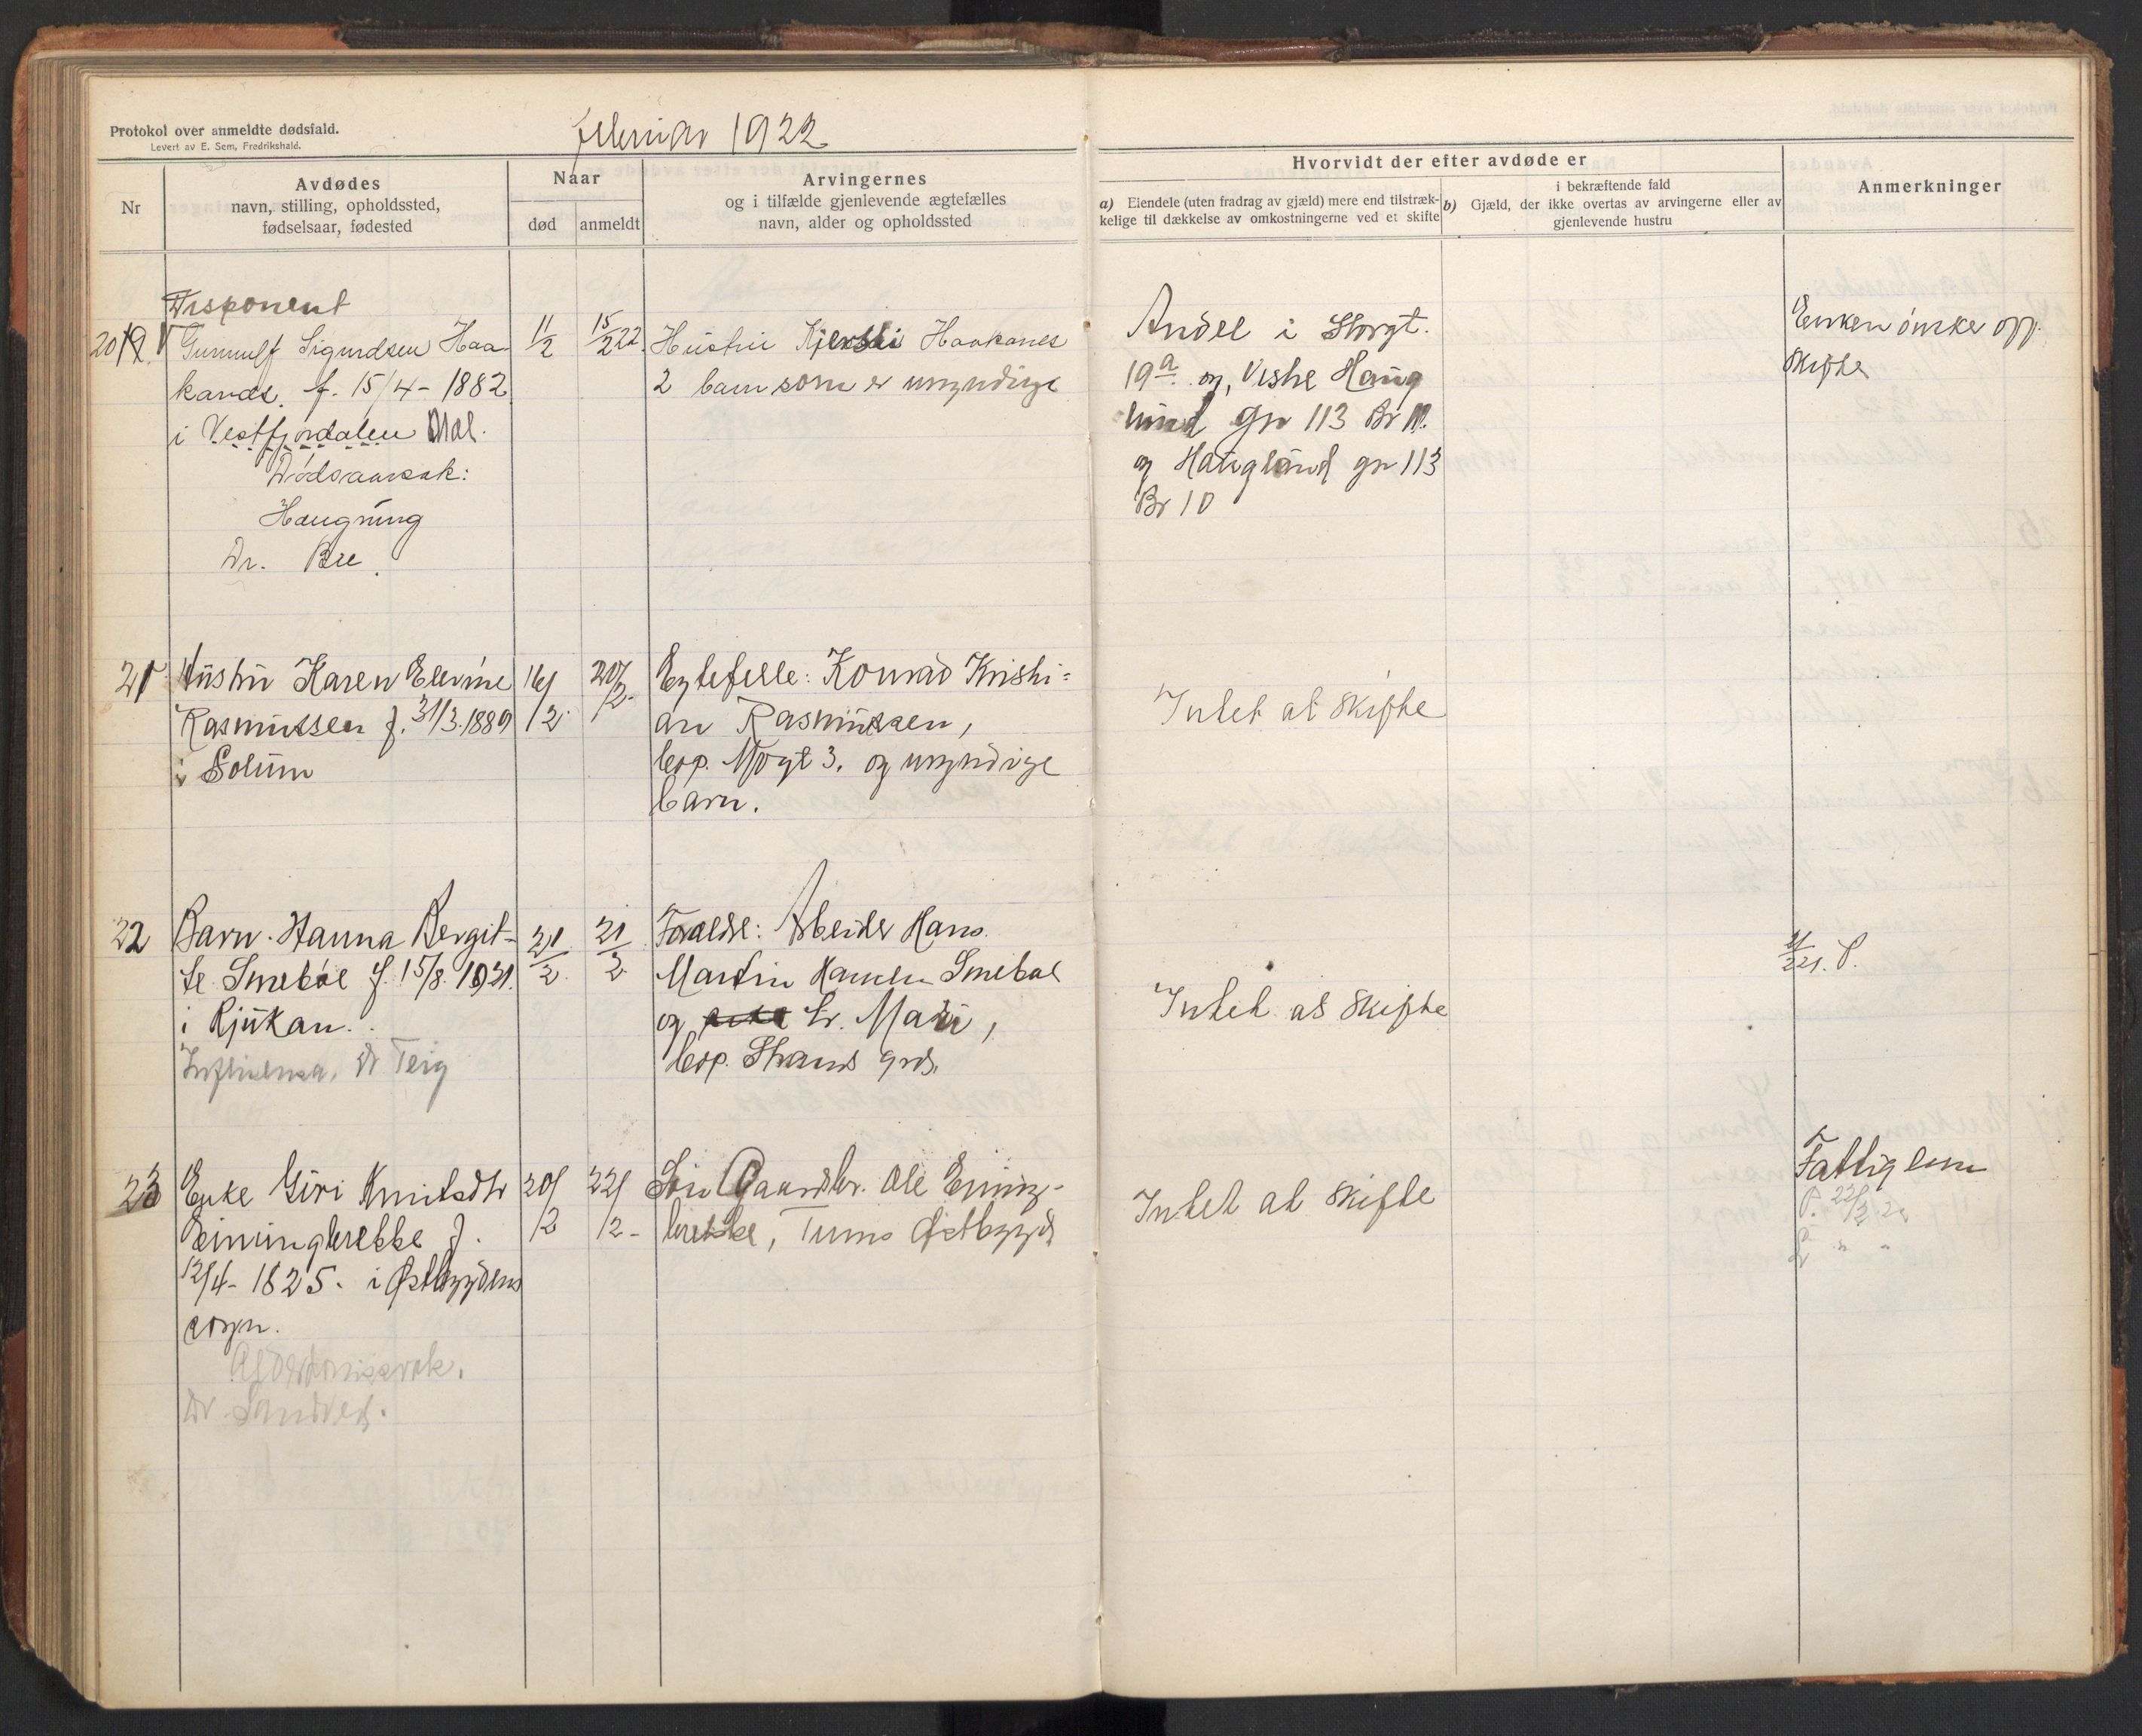 Protokol over anmeldte dødsfald.
Levert av E. Sem, Fredrikshald.
februar 1922
Nr
Avdødes
navn, stilling, opholdssted,
fødselsaar, fødested
Naar
død
anmeldt
Arvingernes
og i tilfælde gjenlevende ægtefælles
navn, alder og opholdssted
Hvorvidt der efter avdøde er
a) Eiendele (uten fradrag av gjæld) mere end tilstræk-
kelige til dækkelse av omkostningerne ved et skifte
i bekræftende fald
b) Gjæld, der ikke overtas av arvingerne eller av
gjenlevende hustru
Anmerkninger
Disponent
20
Gunnulf Sigurdsen Haa
kanes. f. 15/4 - 1882
i Vestfjordalen
Dødsaarsak:
Hængning
Dr. Bre.
11/2
15/2 22.
Hustru Kjersti Haakanes
2 barn som er umyndige
Andel i Storgt.
19a og Vestre Haug
lund gn 113 Br
og Haugland gn 113
Br 10
Enken ønsker opp.
skifte
21
Hustru Karen Elevine
Rasmussen f. 31/3. 1889
i Solum
16/2
20/2
Egtefelle: Konrad Kristi=
an Rasmussen,
bop. 3. og umyndige
barn.
Intet at skifte
22
Barn. Hanna Bergit-
te Smebøl f. 15/8. 1921.
i Rjukan.
Influensa. Dr Teig
21/2
21/2
Forældre: Arbeider Hans
Martin Hansen Smebøl
og Mari,
bop. Strands grd.
Intet at skifte
23
Enke Giri Knutsdtr
Einungbrekke f.
12/4 - 1825. i Østbygdens
sogn.
Alderdomssvak.
Dr Sandved.
20/2
22/2
Søn Gaardbr. Ole Einung-
brekke, Tinns Østbygd
Intet at skifte
Fattiglem